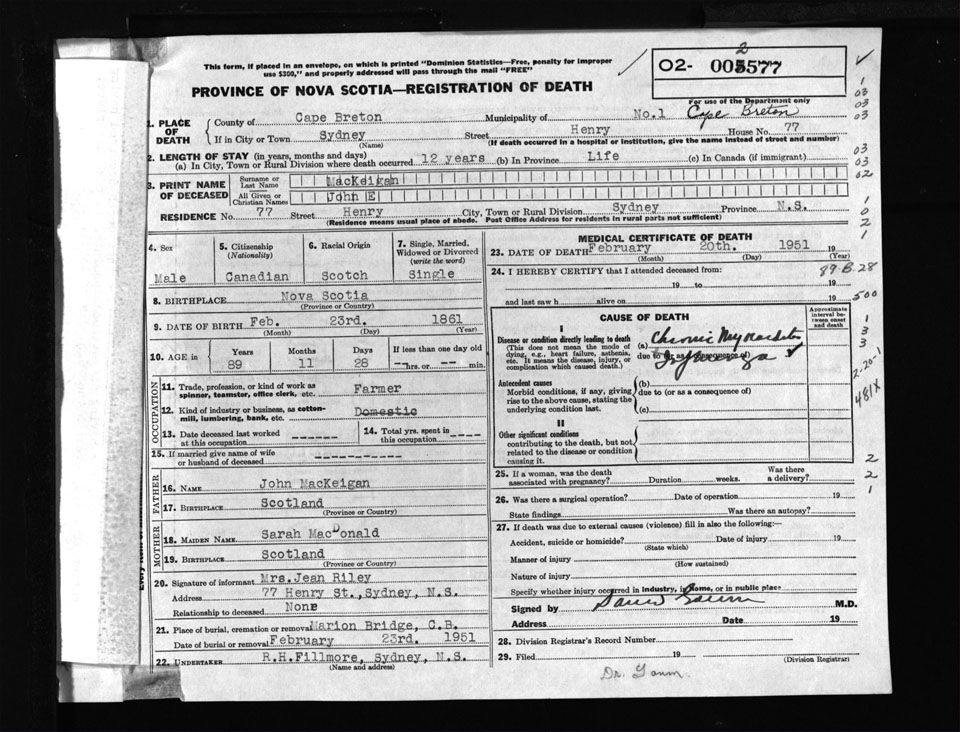 This form, if placed in an envelope, on which is printed "Dominion Statistics—Free, penalty for improper
use $300," and properly addressed will pass through the mail "FREE"
PROVINCE OF NOVA SCOTIA—REGISTRATION OF DEATH
2
02- 005577
For use of the Department only
Cape Breton
1. PLACE OF DEATH
County of Cape Breton Municipality of No.1
If in City or Town Sydney Street Henry House No. 77
(Name) (If death occurred in a hospital or institution, give the name instead of street and number)
2. LENGTH OF STAY (in years, months and days)
(a) In City, Town or Rural Division where death occurred 12 years (b) In Province Life (c) In Canada (if immigrant)
3. PRINT NAME OF DECEASED
Surname or Last Name MacKeigan
All Given or Christian Names John E
RESIDENCE No. 77 Street Henry City, Town or Rural Division Sydney Province N.S.
(Residence means usual place of abode. Post Office Address for residents in rural parts not sufficient)
4. Sex
Male
5. Citizenship (Nationality)
Canadian
6. Racial Origin
Scotch
7. Single, Married, Widowed or Divorced (write the word)
Single
8. BIRTHPLACE Nova Scotia
(Province or Country)
9. DATE OF BIRTH Feb. 23rd. 1861
(Month) (Day) (Year)
10. AGE in
Years Months Days If less than one day old
89 11 28 -- hrs. or -- min.
OCCUPATION
11. Trade, profession, or kind of work as spinner, teamster, office clerk, etc. Farmer
12. Kind of industry or business, as cotton-mill, lumbering, bank, etc. Domestic
13. Date deceased last worked at this occupation ------
14. Total yrs. spent in this occupation ----
15. If married give name of wife or husband of deceased ----------
FATHER
16. NAME John MacKeigan
17. BIRTHPLACE Scotland
(Province or Country)
MOTHER
18. MAIDEN NAME Sarah MacDonald
19. BIRTHPLACE Scotland
(Province or Country)
20. Signature of informant Mrs.Jean Riley
Address 77 Henry St.,Sydney, N.S.
Relationship to deceased None
21. Place of burial, cremation or removal Marion Bridge, C.B.
Date of burial or removal February 23rd. 1951
22. UNDERTAKER R.H.Fillmore, Sydney, N.S.
(Name and address)
MEDICAL CERTIFICATE OF DEATH
23. DATE OF DEATH February 20th. 1951 19
(Month) (Day) (Year)
24. I HEREBY CERTIFY that I attended deceased from:
19 to 19
and last saw h alive on 19
CAUSE OF DEATH
Approximate interval between onset and death
I
Disease or condition directly leading to death
(This does not mean the mode of dying, e.g., heart failure, asthenia, etc. It means the disease, injury, or complication which caused death.)
(a) Chronic Myocarditis
due to (or as consequence of)
Antecedent causes
Morbid conditions, if any, giving rise to the above cause, stating the underlying condition last.
(b)
due to (or as a consequence of)
(c)
II
Other significant conditions
contributing to the death, but not related to the disease or condition causing it.
25. If a woman, was the death associated with pregnancy? Duration weeks. Was there a delivery?
26. Was there a surgical operation? Date of operation 19
State findings Was there an autopsy?
27. If death was due to external causes (violence) fill in also the following:—
Accident, suicide or homicide? Date of injury 19
(State which)
Manner of injury
(How sustained)
Nature of injury
Specify whether injury occurred in industry, in home, or in public place
Signed by M.D.
Address Date 19
28. Division Registrar's Record Number
29. Filed 19
(Division Registrar)
1
03
03
03
03
03
02
1
0
2
1
89-B-28
500
1
3
3
2-20-1
481X
2
2
1